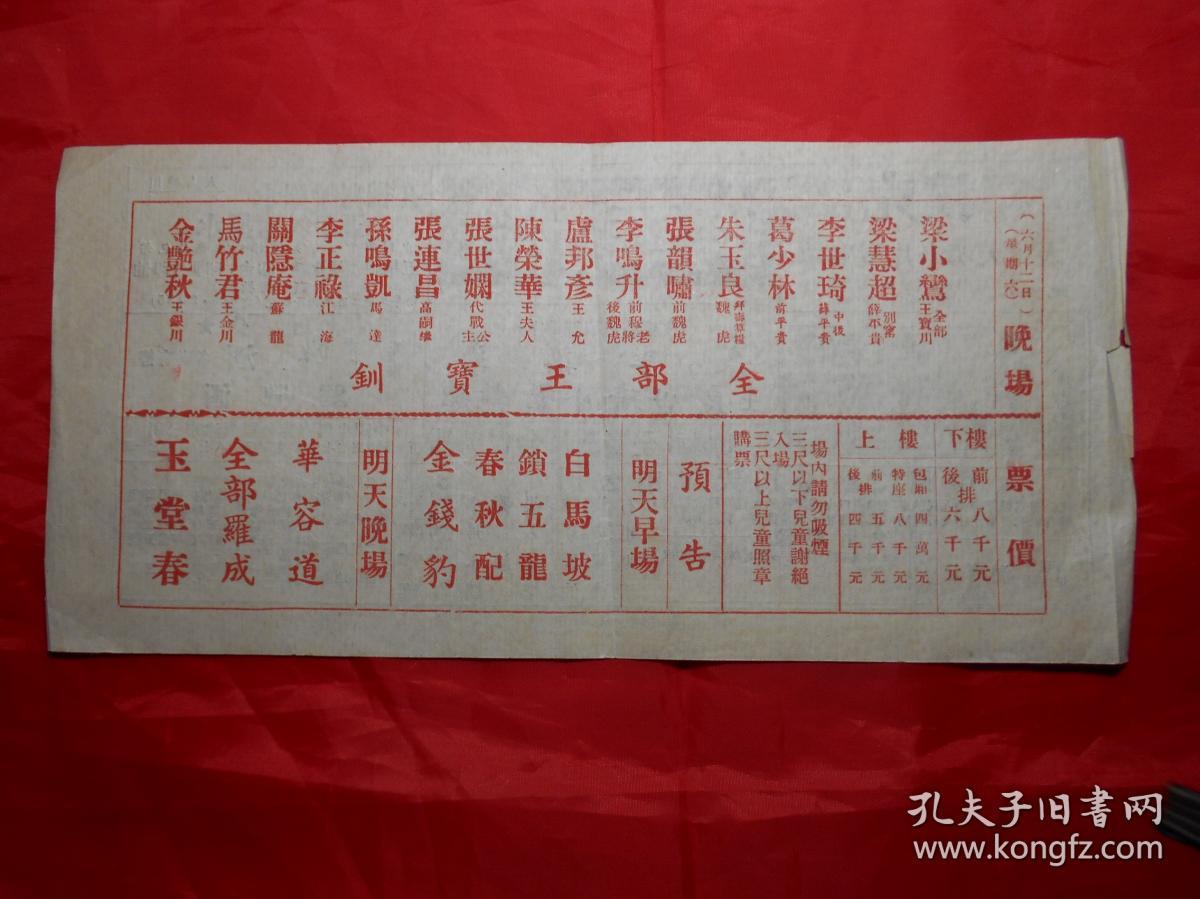 （六月十二日）
（星期六）
晚場
梁小鸞 全部王寶川
梁慧超 別窰薛平貴
李世琦 中後薛平貴
葛少林 前平貴
朱玉良 拜壽算糧魏虎
張韻嘯 前魏虎
李鳴升 前穆老將後魏虎
盧邦彥 王允
陳榮華 王夫人
張世嫻 代戰公主
張連昌 高嗣繼
孫鳴凱 馬達
李正祿 江海
關隱庵 蘇龍
馬竹君 王金川
金艷秋 王銀川
全部王寶釧
票價
樓下
前排八千元
後排六千元
樓上
包廂四萬元
特座八千元
前排五千元
後排四千元
場內請勿吸煙
三尺以下兒童謝絕
入場
三尺以上兒童照章
購票
預告
明天早場
白馬坡
鎖五龍
春秋配
金錢豹
明天晚場
華容道
全部羅成
玉堂春
孔夫子旧书网
www.kongfz.com